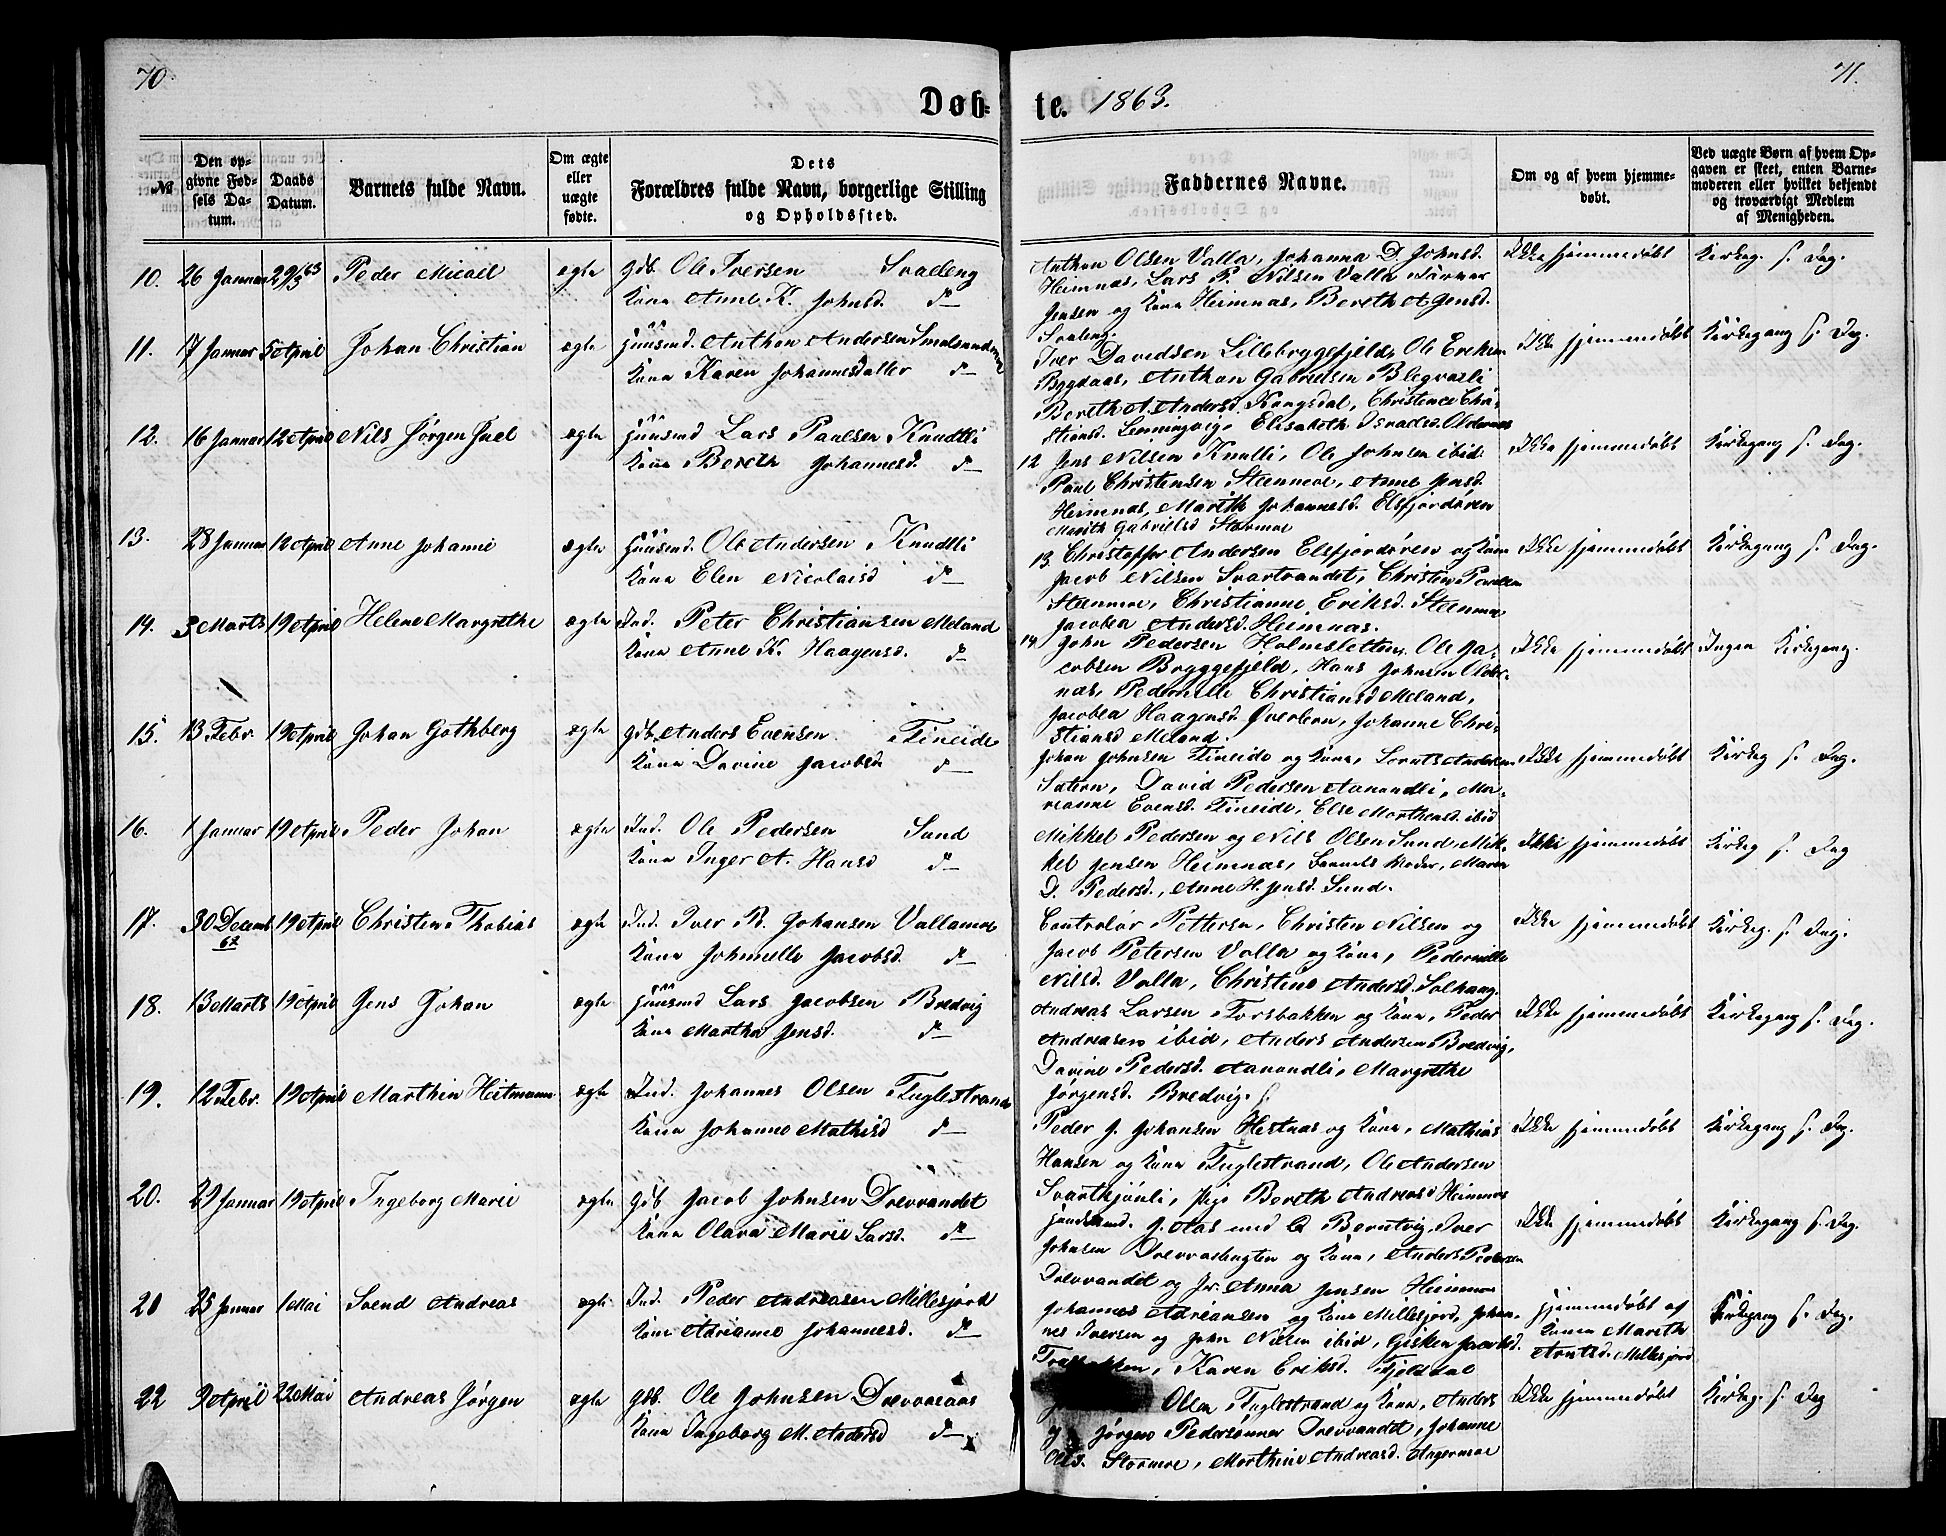 70
71.
Døb-te. 1863.
№
Den opgivne Fødsels Datum.
Daabs Datum.
Barnets fulde Navn.
Om ægte eller uægte fødte.
Dets Forældres fulde Navn, borgerlige Stilling og Opholdssted.
Faddernes Navne.
Om og af hvem hjemmedøbt.
Ved uægte Børn af hvem Opgaven er skeet, enten Barnemoderen eller hvilket bekjendt og troværdigt Medlem af Menigheden.
10. 26 Januar 29/3 63 Peder Micael ægte Gdb. Ole Iversen Svaleng
Kone Anne K. Johnsd. do
Anthon Olsen Valla, Johanna D. Johnsd.
Heimnæs, Lars P. Nilsen Valla
Jensen og Kone Heimnæs, Bereth A Jensd.
Svaleng
Ikke hjemmedøbt Kirkeg. s. Dag.
11. 17 Januar 5 April Johan Christian ægte Huusmd. Anthon Andersen Smalsundmoe
Kone Karen Johannesdatter do
Iver Davidsen Lillebryggefjeld, Ole Eriksen
Bygdaas, Anthon Gabrielsen
Bereth A. Andersd. Kongsdal, Christence Chri-
stiansd. Lenningvig, Elisabeth Israelsd. Oldernæs
Ikke hjemmedøbt Kirkegang s. Dag.
12. 16 Januar 12 April Nils Jørgen Juel ægte Huusmd Lars Paulsen Knudtli
Kone Bereth Johannesd. do
12 Jens Nilsen Knutli, Ole Johnsen ibid.
Paul Christensen Steenmoe, Anne Jensd.
Heimnæs, Marith Johannesd. Elsfjordøren
Marith Gabrielsd Stormoe
Ikke hjemmedøbt Kirkegang s. Dag.
13. 28 Januar 12 April Anne Johanne ægte Huusmd. Ole Andersen Knudtli
Kone Elen Nicolaisd do
13. Christopher Andersen Elsfjordøren og Kone
Jacob Nilsen Svartvandet, Christen Poulsen
Steenmoe, Christianne Eriksd. Steenmoe
Jacobea Andersd. Heimnæs.
Ikke hjemmedøbt Kirkegang s. Dag.
14. 3 Marts 19 April Helene Margrethe ægte Ind. Peter Christiansen Meland
Kone Anne K. Haagensd. do
14 John Pedersen Holmsletten, Ole Ja-
cobsen Bryggefjeld, Hans Johnsen Older-
næs, Pedernille Christiansd Meland,
Jacobea Haagensd. Øverleren, Johanne Chri-
stiansd Meland.
Ikke hjemmedøbt Ingen Kirkegang.
15. 13 Febr. 19 April Johan Gothberg ægte Gdb. Anders Evensen Fineide
Kone Davine Jacobsd do
Johan Johnsen Fineide og Kone, Lornts Andersen
Sætern, David Pedersen Aanondli, Ma-
rianne Evensd. Fineide, Else Marthensd. ibid
Ikke hjemmedøbt Kirkeg s. Dag.
16. 1 Januar 19 April Peder Johan ægte Ind. Ole Pedersen Sund
Kone Inger A. Hansd do
Mikkel Pedersen og Nils Olsen Sund, Mik-
kel Jensen Heimnæs, Barnets Moder, Maren
D. Pedersd., Anne H. Jensd. Sund.
Ikke hjemmedøbt Kirkeg s. Dag
17. 30 Decemb 62 19 April Christen Thobias ægte Ind. Iver B. Johansen Vallamoe
Kone Johnnelle Jacobsd. do
Controlør Pettersen, Christen Nilsen og
Jacob Petersen Valla og Kone, Pedernille
Nilsd. Valla, Christine Andersd. Solhaug
Ikke hjemmedøbt Kirkeg. s. Dag.
18. 13 Marts 19 April Jens Johan ægte Huusmd Lars Jacobsen Bredvig
Kone Martha Jensd. do
Andreas Larsen Forsbakken og Kone, Peder
Andreasen ibid, Anders Andersen Bredvig,
Davine Pedersd. Aanondli, Margrethe
Jørgensd. Bredvig.
Ikke hjemmedøbt Kirkegang s. Dag.
19. 12 Febr. 19 April Marthin Heitmann ægte Ind. Johannes Olsen Fuglestrand
Kone Johanne Mathisd do
Peder J. Johansen Hestnæs og Kone, Mathias
Hansen og Kone Fuglestrand, Ole Andersen
Svarthjønli, Pige Bereth Andreasd Heimnæs
Ikke hjemmedøbt Kirkegang s. Dag.
20. 29 Januar 19 April Ingeborg Marie ægte Gdb Jacob Johnsen Drevvandet
Kone Olava Marie Larsd. do
Berntvig, Iver
Johnsen Drevvasbugten og Kone, Anders Pedersen
Drevvandet og Jr. Anna Jensen Heimnæs
Ikke hjemmedøbt Kirkegang s. Dag.
21 25 Januar 1 Mai Svend Andreas ægte Ind. Peder Andreasen Millesjord
Kone Adrianne Johannesd. do
Johannes Adriansen og Kone Millesjord, Johan-
nes Iversen og John Nilsen ibid, Gisken Jacobsd.
Karen Eriksd. Fjeldal
Hjemmedøbt af
Konen Mareth
Arntsd. Millesjord
Kirkegang s. Dag.
22 9 April 22 Mai Andreas Jørgen ægte Gdb. Ole Johnsen Drevvasaas
Kone Ingeborg M. Andersd do
Olsen Fuglestrand og Kone, Anders
og Jørgen Pedersønner Drevvandet, Johanne
Olsd. Stormoe, Marthine Andreasd. Angermoe
Ikke hjemmedøbt Kirkeg. s. Dag